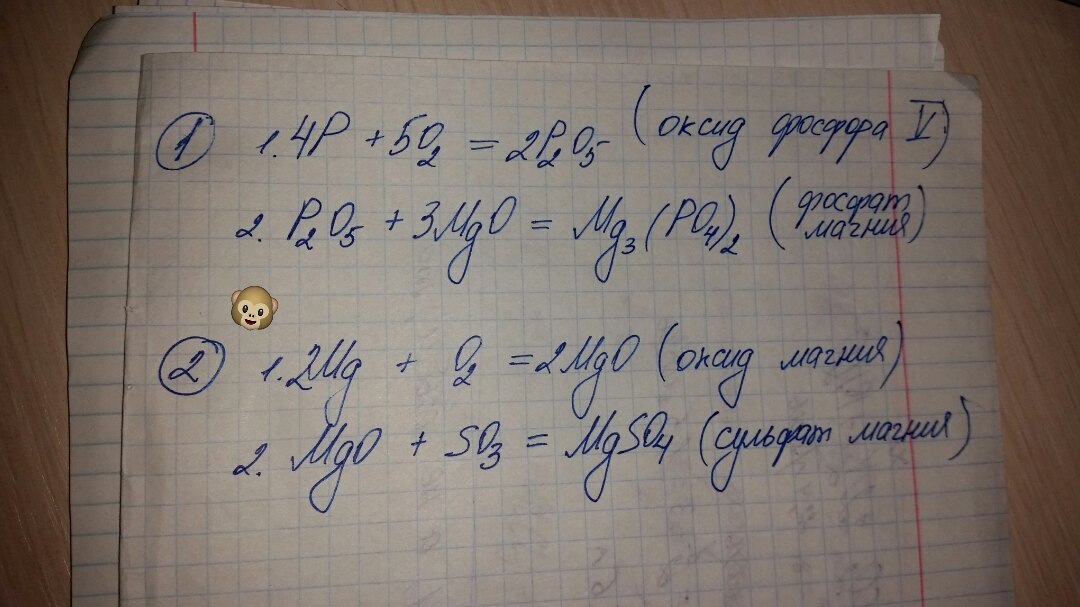 ① 1. 4P + 5O₂ = 2P₂O₅ (оксид фосфора V)
2. P₂O₅ + 3MgO = Mg₃(PO₄)₂ (фосфат магния)
② 1. 2Mg + O₂ = 2MgO (оксид магния)
2. MgO + SO₃ = MgSO₄ (сульфат магния)